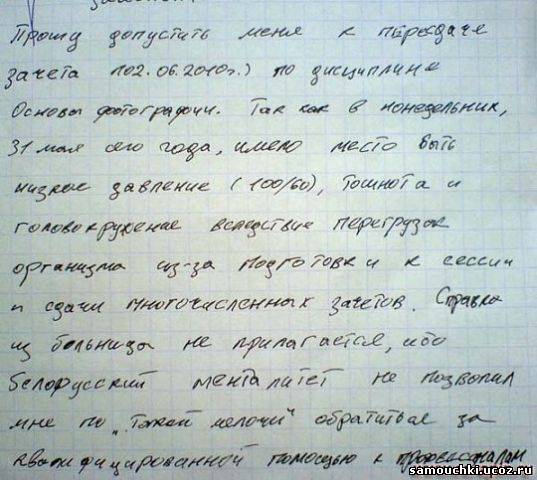 Прошу допустить меня к пересдаче
зачета (02.06.2010г.) по дисциплине
Основы фотографии. Так как в понедельник,
31 мая сего года, имело место быть
низкое давление (100/60), тошнота и
головокружение вследствие перегрузок
организма из-за подготовки к сессии
и сдачи многочисленных зачетов. Справка
из больницы не прилагается, ибо
белорусский менталитет не позволил
мне по „такой мелочи" обратиться за
квалифицированной помощью к профессионалам
samouchki.ucoz.ru